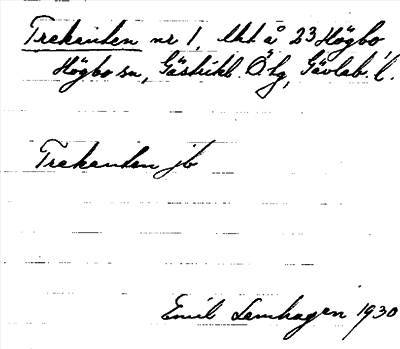 Trekanten nr 1, Urt å 23 Högbo,
Högbo sn, Gästrikl. Ö tg, Gävleb. l.
Trekanten jb
Emil Lemhagen 1930